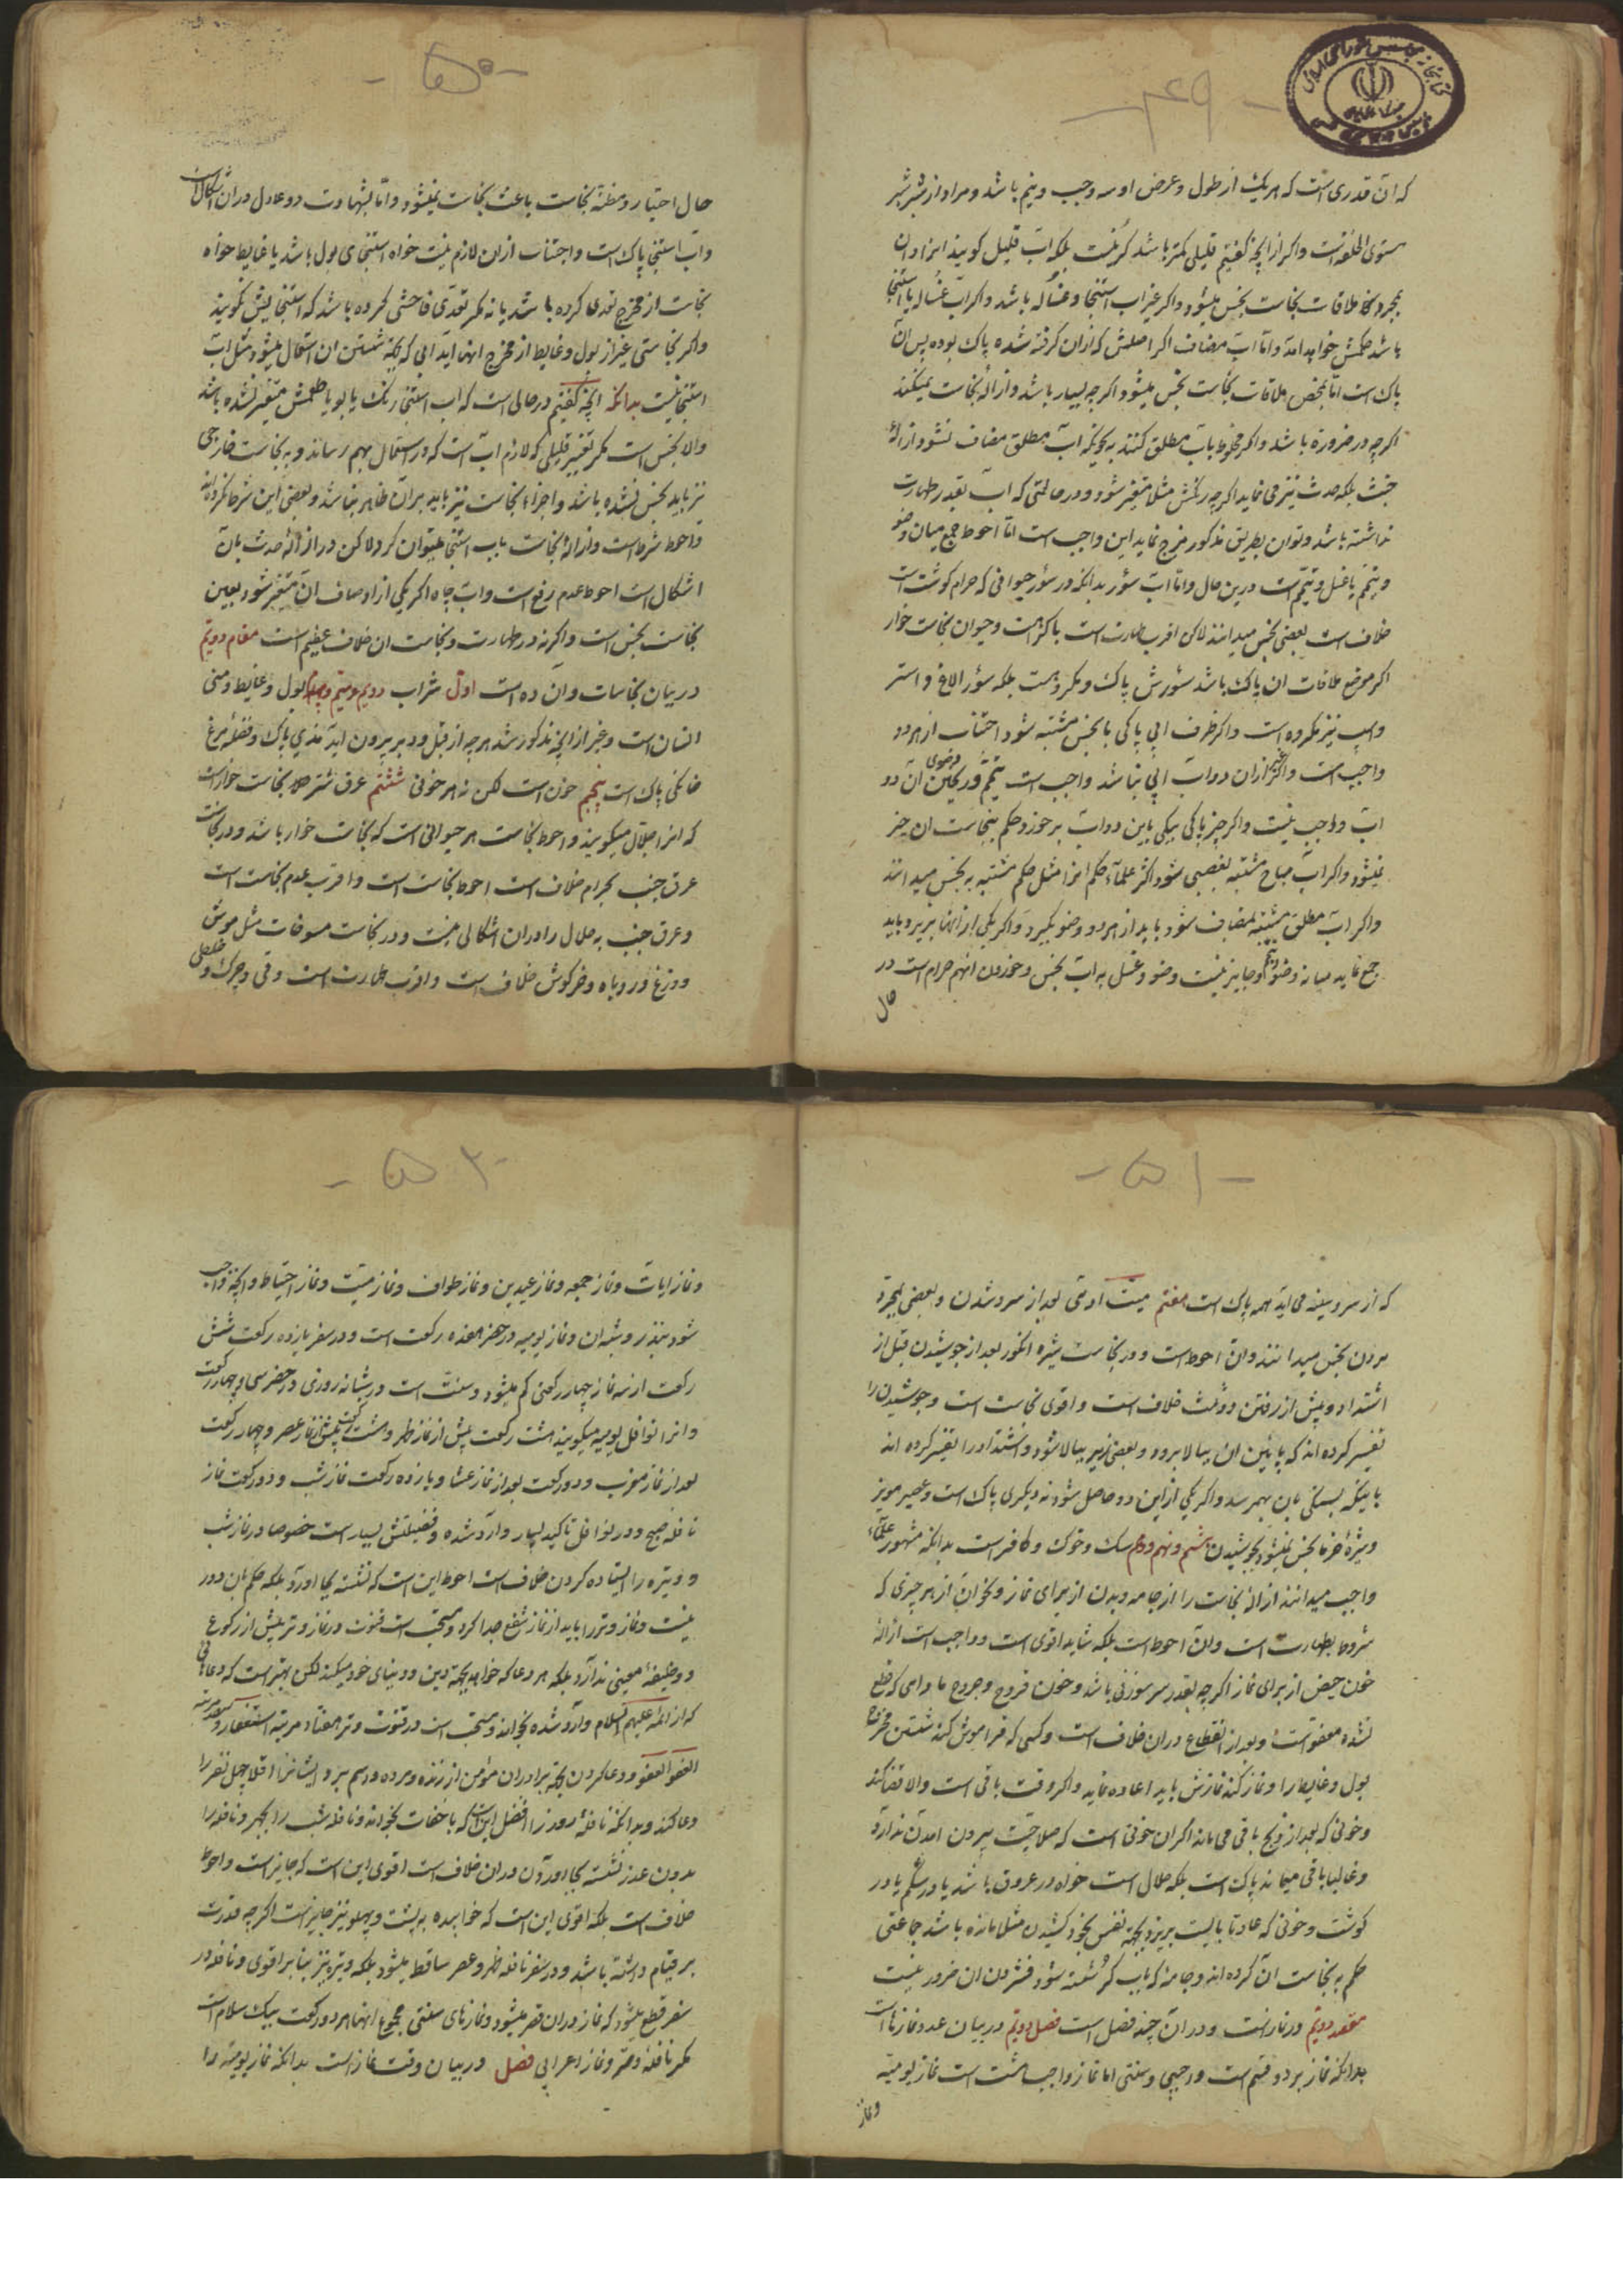 - ۴۹ -
که آن قدری است که هر یک از طول و عرض او سه وجب و نیم باشد و مراد از شبر شبر
مستوی الخلقه است و اگر از آنچه گفتیم قلیلی کمتر باشد کر نیست بلکه آب قلیل گویند
بمجرد ملاقات نجاست نجس میشود و اگر غیر آب استنجا و غساله باشد و اگر آب غساله یا استنجا
باشد حکمش خواهد آمد و اما آب مضاف اگر اصلش که از آن گرفته شده پاک بوده پس آن
پاک است اما بمحض ملاقات نجاست نجس میشود اگر چه بسیار باشد و ازاله نجاست نمیکند
اگر چه در ضرورة باشد و اگر مخلوط بآب مطلق کنند به نحویکه آب مطلق مضاف نشود ازاله
خبث بلکه حدث نیز می نماید اگر چه رنگش مثلا متغیر شود و در حالتی که آب بقدر طهارت
نداشته باشد و توان بطریق مذکور مزج نماید این واجب است اما احوط جمع میان وضو
و تیمم یا غسل و تیمم است درین حال و اما آب سؤر بدانکه در سؤر حیوانی که حرام گوشت است
خلاف است بعضی نجس میدانند لاکن اقرب طهارت است با کراهت و حیوان نجاست خوار
اگر موضع ملاقات آن پاک باشد سؤرش پاک و مکروهست بلکه سؤر الاغ و استر
و اسب نیز مکروه است و اگر ظرف آبی پاکی با نجس مشتبه شود اجتناب از هر دو
واجب است و اگر غیر از آن دو آب آبی نباشد واجب است تیمم و ریختن آن دو
آب واجب نیست و اگر چیز پاکی بیکی باین دو آب بر خورد حکم بنجاست آن چیز
نمیشود و اگر آب مباح مشتبه بغصبی شود اکثر علماء حکم آنرا مثل حکم مشتبه به نجس میدانند
و اگر آب مطلق مشتبه بمضاف شود باید از هر دو وضو بگیرد و اگر یکی از آنها بریزد باید
جمع نماید میانه وضو و تیمم و جایز نیست وضو و غسل به آب نجس و خوردن آنهم حرام است در
حال
- ۵۰ -
حال اختیار و مظنّه نجاست باعث نجاست نمیشود و اما بشهادت دو عادل در آن اشکال است
و آب استنجا پاک است و اجتناب از آن لازم نیست خواه استنجای بول باشد یا غایط خواه
نجاست از مخرج تعدی کرده باشد یا نه مگر تعدّی فاحشی کرده باشد که استنجایش نگویند
و اگر نجاستی غیر از بول و غایط از مخرج آنها آید آبی که بجهة شستن آن استعمال میشود مثل آب
استنجا نیست بدانکه آنچه گفتیم در حالی است که آب استنجا رنگ یا بو یا طعمش متغیر نشده باشد
والا نجس است مگر تغییر قلیلی که لازم آب است که در استعمال بهم رساند و به نجاست خارجی
نیز باید نجس نشده باشد و اجزاء نجاست نیز باید بر آن ظاهر نباشد و بعضی این شرط نکرده اند
و احوط شرط است و ازاله نجاست بآب استنجا میتوان کرد ولاکن در ازاله حدث بآن
اشکال است احوط عدم رفع است و آب چاه اگر یکی از اوصاف آن متغیر شود بعین
نجاست نجس است و اگر نه در طهارت و نجاست آن خلاف عظیم است مقام دویّم
در بیان نجاسات و آن ده است اول شراب دویم و سیّم و چهارم بول و غایط و منی
انسان است و غیر از آنچه مذکور شد هر چه از قبل و دبر بیرون آید مذی پاک و فضلهٔ مرغ
خانگی پاک است پنجم خون است لکن نه هر خونی ششم عرق شتر نجاست خوار است
که آنرا جلّال میگویند و احوط نجاست هر حیوانی است که نجاست خوار باشد و در نجاست
عرق جنب بحرام خلاف است احوط نجاست است و اقرب عدم نجاست است
و عرق جنب به حلال را در آن اشکالی نیست و در نجاست مسوخات مثل موش
و وزغ و روباه و خرگوش خلاف است و اقرب طهارت است و قی و چرک و خلطی
- ۵۱ -
که از سر و سینه می آید همه پاک است هفتم میّت آدمی بعد از سرد شدن و بعضی بمجرّد
مردن نجس میدانند و آن احوط است و در نجاست شیره انگور بعد از جوشیدن قبل از
اشتداد و پیش از رفتن دو ثلث خلاف است و اقوی نجاست است و جوشیدن را
تفسیر کرده اند که پایین آن ببالا برود و بعضی زیر ببالا شود و اشتداد را تفسیر کرده اند
باینکه بستگی بآن بهمرسد و اگر یکی از این دو حاصل شود نه دیگری پاک است و عصیر مویز
و شیرهٔ خرما نجس نمیشود بجوشیدن هشتم و نهم و دهم سگ و خوک و کافر است بدانکه مشهور علماء
واجب میدانند ازاله نجاست را از جامه و بدن از برای نماز و نحو آن از هر چیزی که
مشروط بطهارت است و آن احوط است بلکه شاید اقوی است و واجب است ازاله
خون حیض از برای نماز اگر چه بقدر سر سوزنی باشد و خون قروح و جروح مادامی که قطع
نشده معفو است و بعد از انقطاع در آن خلاف است و کسی که فراموش کند شستن مخرج
بول و غایط را و نماز کند نمازش باید اعاده نماید و اگر وقت باقی است والا قضا کند
و خونی که بعد از ذبح باقی می ماند اگر آن خونی است که صلاحیّت بیرون آمدن ندارد
و غالبا باقی میماند پاک است بلکه حلال است خواه در عروق باشد یا در شکم یا در
گوشت و خونی که عادتا بایست بریزد بجهة نفس بخود کشیدن مثلا مانده باشد جماعتی
حکم به نجاست آن کرده اند و جامهٔ که بآب کر شسته شود فشردن آن ضرور نیست
مقصد دویّم در نماز است و در آن چند فصل است فصل دویّم در بیان عدد نمازها است
بدانکه نماز بر دو قسم است واجبی و سنتی اما نماز واجب هشت است نماز یومیّه
و نماز
- ۵۲ -
و نماز آیات و نماز جمعه و نماز عیدین و نماز طواف و نماز میّت و نماز احتیاط و آنچه واجب
شود بنذر و شبه آن و نماز یومیه در حضر هفده رکعت است و در سفر یازده رکعت شش
رکعت از سه نماز چهار رکعتی کم میشود و سنّت است در شبانه روزی در حضر سی و چهار رکعت
و آنرا نوافل یومیه میگویند هشت رکعت پیش از نماز ظهر و هشت رکعت پیش از نماز عصر و چهار رکعت
بعد از نماز مغرب و دو رکعت بعد از نماز عشا و یازده رکعت نماز شب و دو رکعت نماز
نافله صبح و در نوافل تأکید بسیار وارد شده و فضیلتش بسیار است خصوصا در نماز شب
و وتیره را ایستاده کردن خلاف است احوط این است که نشسته بجا آورد بلکه حکم بآن دور
نیست و نماز وتر را باید از نماز شفع جدا کرد و مستحبّ است قنوت در نماز وتر پیش از رکوع
و وظیفهٔ معینی ندارد بلکه هر دعا که خواهد بجهة دین و دنیای خود میکند لکن بهتر است که دعاهائی
که از ائمه علیهم السلام وارد شده بخواند و مستحبّ است در قنوت وتر هفتاد مرتبه استغفار و سیصد مرتبه
العفو العفو و دعا کردن بجهة برادران مؤمن از زنده و مرده و اسم برد ایشانرا اقلا چهل نفر را
دعا کند و بدانکه نافله روز را افضل این است که باخفات بخواند و نافله شب را بجهر و نافله را
بدون عذر نشسته بجا آوردن در آن خلاف است اقوی این است که جایز است و احوط
خلاف است بلکه اقوی این است که خوابیده به پشت و پهلو نیز جایز است اگر چه قدرت
بر قیام داشته باشد و در سفر نافله ظهر و عصر ساقط میشود بلکه وتیره نیز بنابر اقوی و نافله در
سفر قطع میشود که نماز در آن قصر میشود و نمازهای سنتی مجموع آنها هر دو رکعت بیک سلام است
مگر نافلهٔ وتر و نماز اعرابی فصل در بیان وقت نماز است بدانکه نماز یومیّه را